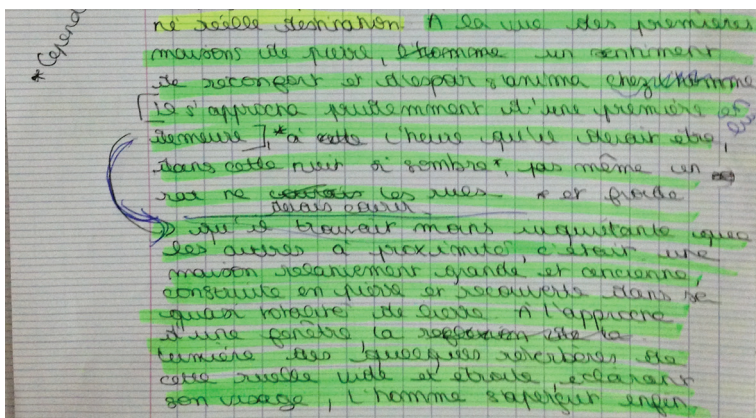 né réelle destination. A la vue des premières
* Cepend
maisons de pierre, l'homme un sentiment
de réconfort et d'espoir s'anima chez l'homme
en lui
[il s'approcha prudemment d'une première
demeure], * à cette l'heure qu'il devait être,
dans cette nuit si sombre *, pas même un
rat ne les rues * et froide
qu'il trouvait moins inquiétante que
les autres à proximité, c'était une
maison relativement grande et ancienne,
construite en pierre et recouverte dans sa
quasi totalité de lierre. A l'approche
d'une fenêtre, la de la
lumière des quelques réverbères de
cette ruelle vide et étroite, éclairant
son visage, l'homme s'aperçut enfin